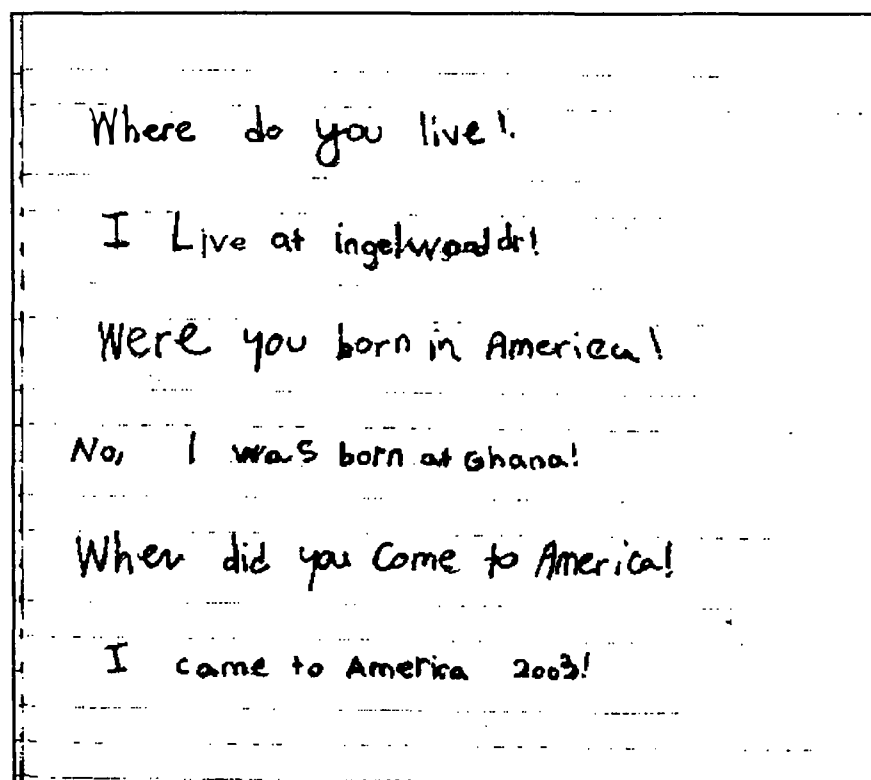 Where do you live!
I Live at ingelwood dr!
Were you born in America!
No, I was born at Ghana!
When did you Come to America!
I came to America 2003!